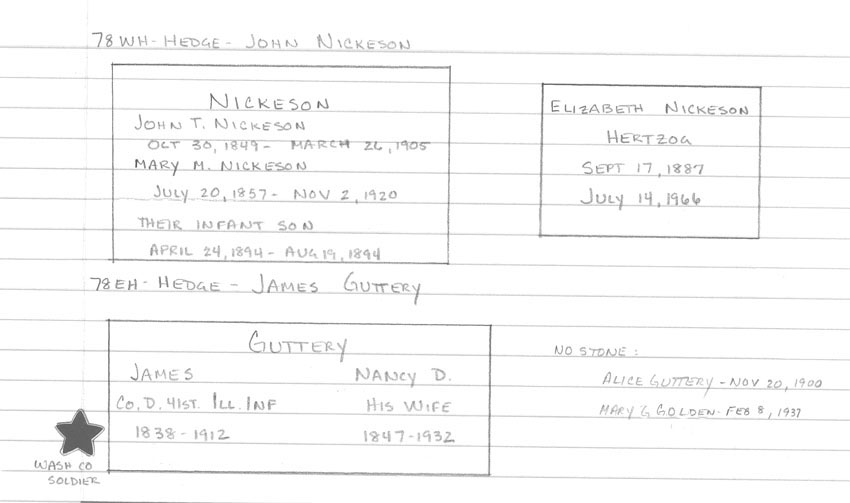 78WH-HEDGE-JOHN NICKESON
NICKESON
JOHN T. NICKESON
OCT 30, 1849- MARCH 26, 1905
MARY M. NICKESON
JULY 20, 1857- NOV 2, 1920
THEIR INFANT SON
APRIL 24, 1894- AUG 19, 1894
ELIZABETH NICKESON
HERTZOG
SEPT 17, 1887
JULY 14, 1966
78EH-HEDGE-JAMES GUTTERY
GUTTERY
JAMES
NANCY D.
CO. D. 41ST. ILL. INF
HIS WIFE
1838-1912
1847-1932
WASH CO
SOLDIER
NO STONE:
ALICE GUTTERY-NOV 20, 1900
MARY G GOLDEN-FEB 8, 1937